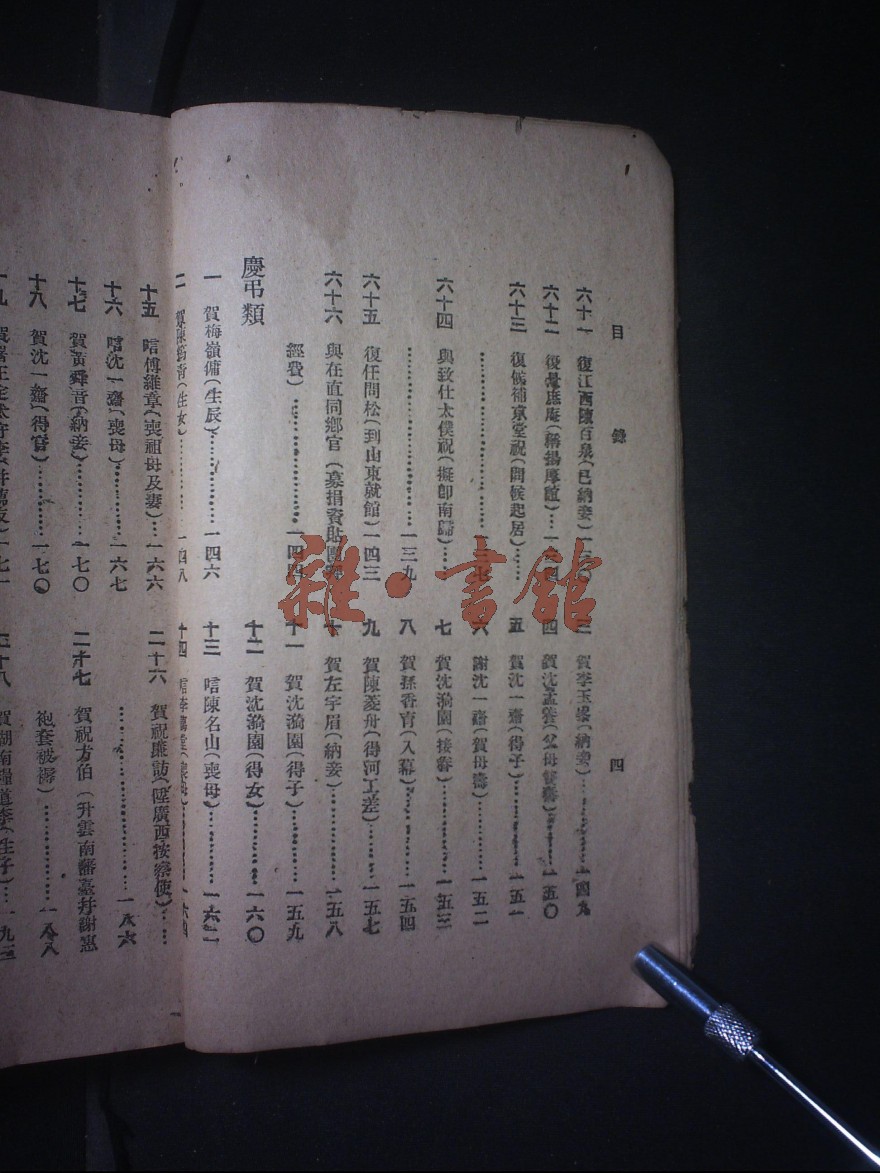 目錄
四
六十一 復江西陳百泉(已納妾)
六十二
六十三 復候補京堂祝(問候起居)……
一三七
六十四 與致仕太僕祝(擬卽南歸)……
一三九
六十五 復任問松(到山東就館)一四三
六十六 與在直同鄉官(募捐資貼
經費)……一四四
慶弔類
一 賀梅嶺傭(生辰)……一四六
二 賀陳筠青(生女)……一四八
賀李玉(納妾)……一四九
四 賀沈孟養(父母雙壽)……一五〇
五 賀沈一齋(得子)……一五一
六 謝沈一齋(賀母壽)……一五二
七 賀沈漪園(接眷)……一五三
八 賀孫香甯(入幕)……一五四
九 賀陳菱舟(得河工差)……一五七
十 賀左宇眉(納妾)……一五八
十一 賀沈漪園(得子)……一五九
十二 賀沈漪園(得女)……一六〇
十三 唁陳名山(喪母)……一六二
十四
一六四
十五 唁傅維章(喪祖母及妻)…一六六
十六 唁沈一齋(喪母)……一六七
十七 賀黃舜音(納妾)……一七〇
十八 賀沈一齋(得官)……一七〇
一七一
二十六 賀祝廉訪(陞廣西按察使)……
……一八六
二十七 賀祝方伯(升雲南藩臺幷謝惠
袍套被褥)……一八八
二十八 賀湖南糧道李(生子)…一九三
雜·書館